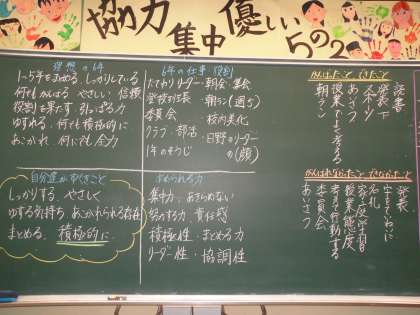 協力
集中
優しい
5の2
理想の6年
1~5年をまとめる。しっかりしている
何でもがんばる やさしい 信頼
役割を果たす 引っぱる力
ゆずれる 何でも積極的に
あこがれ 何にも全力
6年の仕事 役割
たてわりリーダー・朝会・集会
登校班長 朝ラン(週5)
委員会 校内美化
クラブ・部活 ・日野のリーダー
1年のそうじ (顔)
自分達が歩くこと
しっかりする やさしく
ゆずる気持ち あこがれられる存在
まとめる 積極的に
求められる力
集中力 あきらめない
努力する力 責任感
積極性・まとめる力
リーダー性・協調性
がんばったこと できたこと
読書
あいさつ
発表
スポーツ
授業でよく考える
朝ラン
がんばれなかったこと できなかったこと
発表
字をていねいに
名札
家庭学習
授業態度
考えて行動する
委員会
あいさつ